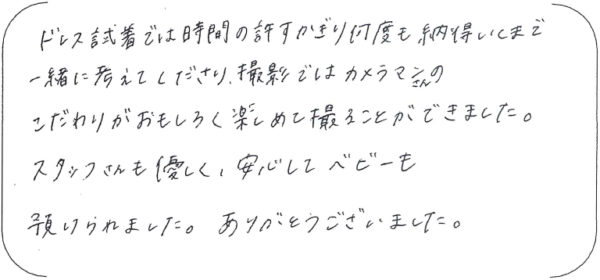 ドレス試着では時間の許すかぎり何度も納得いくまで
一緒に考えてくださり、撮影ではカメラマンさんの
こだわりがおもしろく楽しめて撮ることができました。
スタッフさんも優しく、安心してベビーも
預けられました。ありがとうございました。